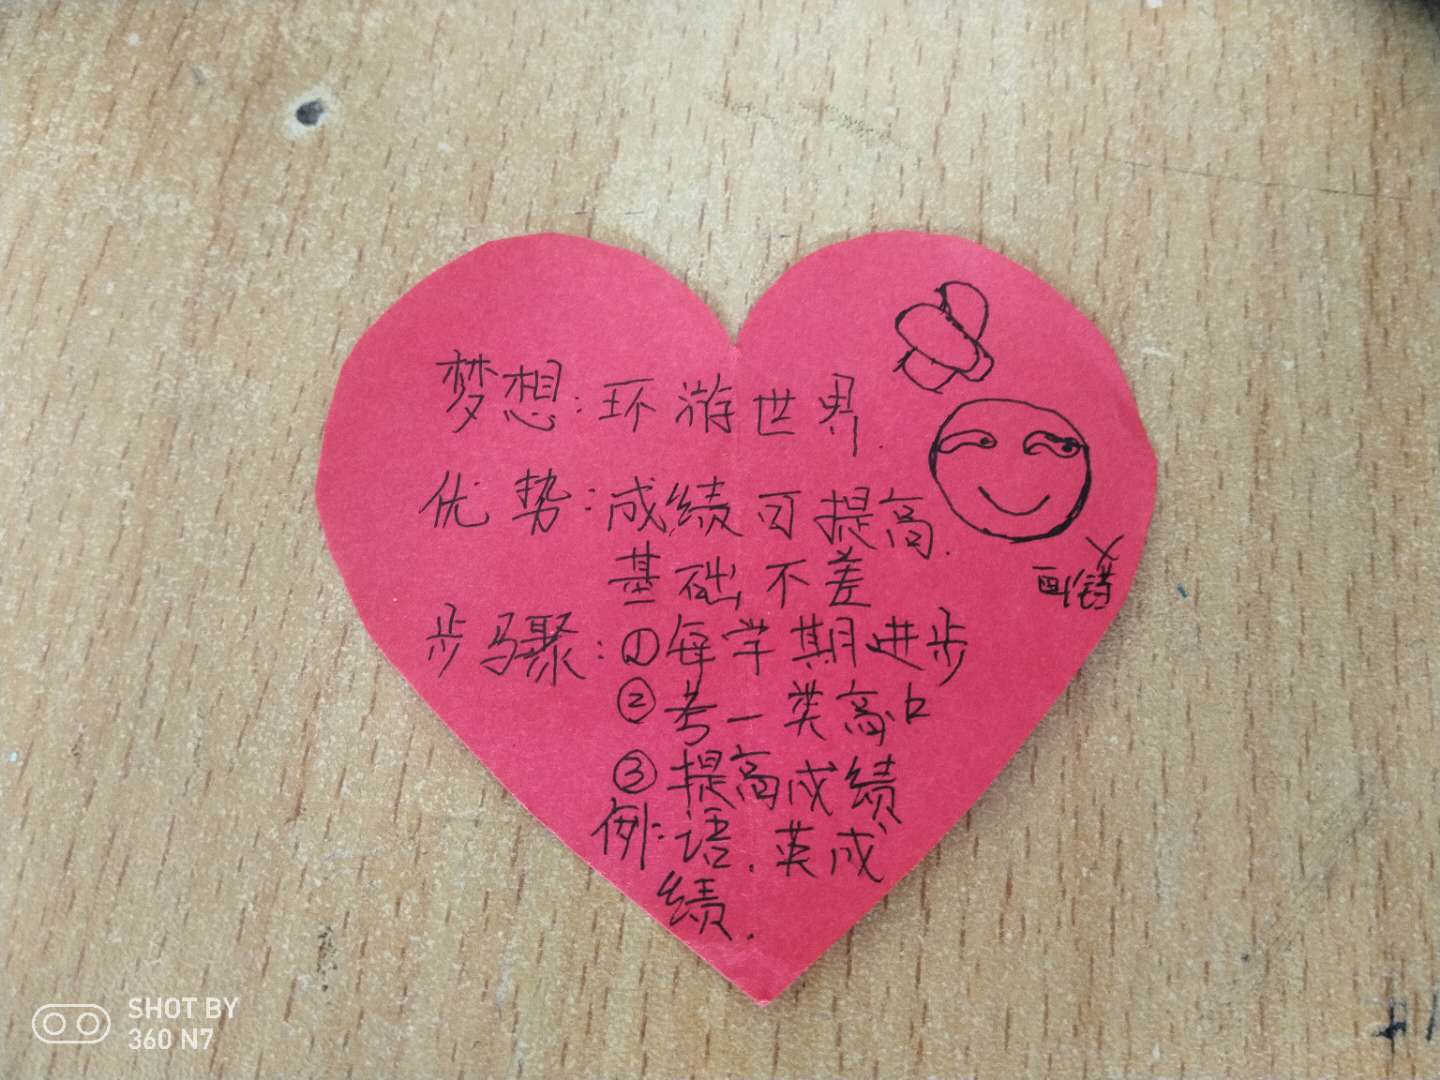 梦想:环游世界.
优势:成绩可提高.
基础不差
步骤:①每学期进步
②考一类高中
③提高成绩
例:语.英成
绩.
画错
SHOT BY
360 N7